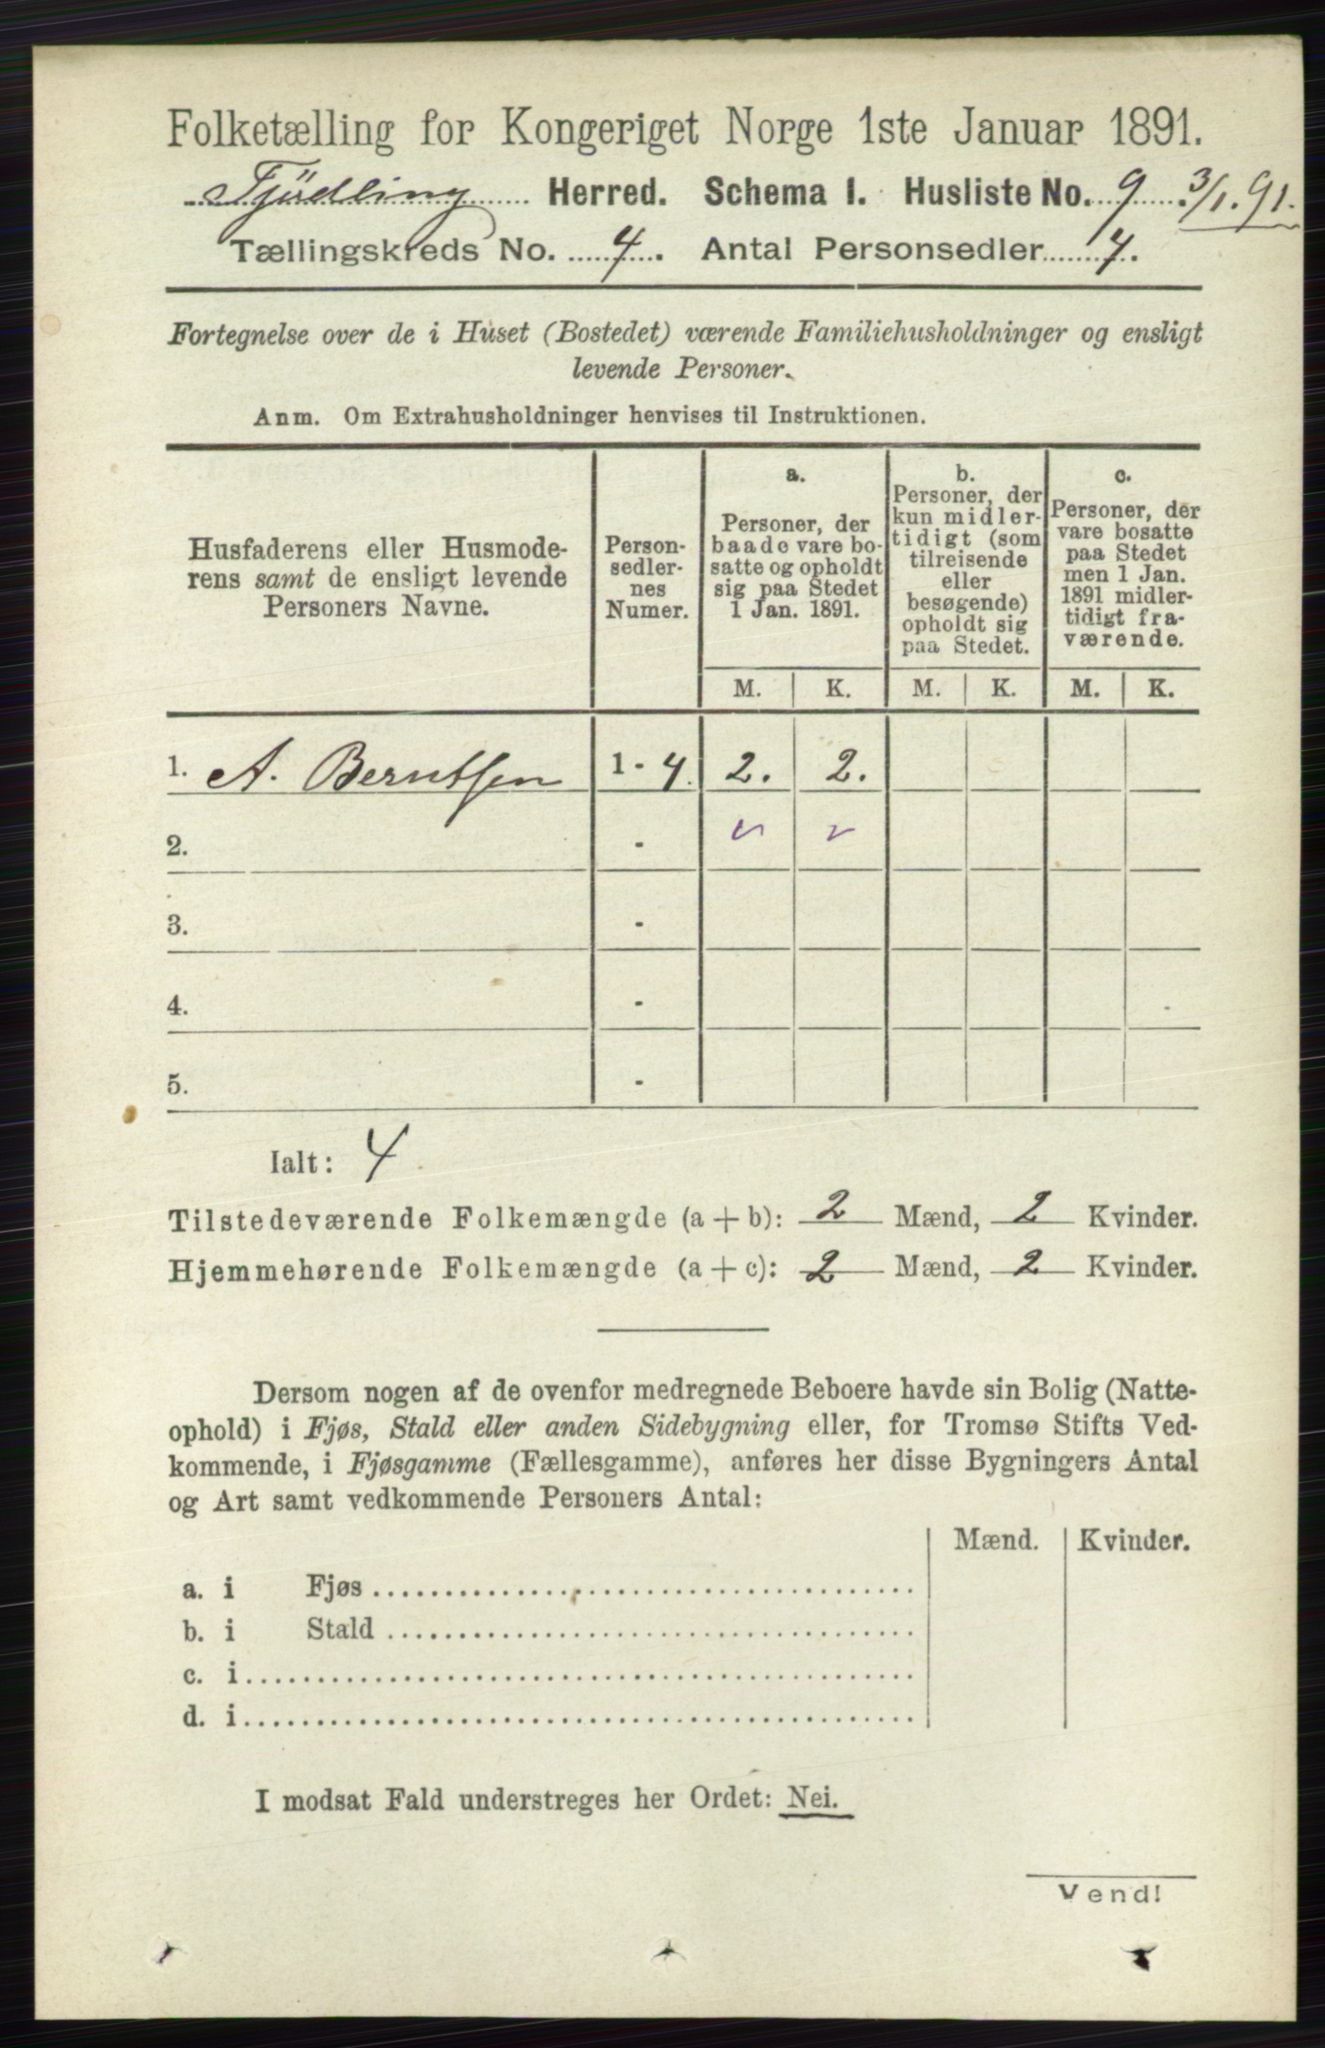 Folketælling for Kongeriget Norge 1ste Januar 1891.
Tjödling Herred. Schema 1. Husliste No. 9 3/1.91.
Tællingskreds No. 4. Antal Personsedler 4.
Fortegnelse over de i Huset (Bostedet) værende Familiehusholdninger og ensligt
levende Personer.
Anm. Om Extrahusholdninger henvises til Instruktionen.
Husfaderens eller Husmode-
rens samt de ensligt levende
Personers Navne.
Person-
sedler-
nes
Numer.
a.
Personer, der
baade vare bo-
satte og opholdt
sig paa Stedet
1 Jan. 1891.
b.
Personer, der
kun midler-
tidigt (som
tilreisende
eller
besøgende)
opholdt sig
paa Stedet.
c.
Personer, der
vare bosatte
paa Stedet
men 1 Jan.
1891 midler-
tidigt fra-
værende.
M. K. M. K. M. K.
1. A. Berntsen 1 - 4. 2. 2.
2. -
3. -
4. -
5. -
Ialt: 4
Tilstedeværende Folkemængde (a + b): 2 Mænd, 2 Kvinder.
Hjemmehørende Folkemængde (a + c): 2 Mænd, 2 Kvinder.
Dersom nogen af de ovenfor medregnede Beboere havde sin Bolig (Natte-
ophold) i Fjøs, Stald eller anden Sidebygning eller, for Tromsø Stifts Ved-
kommende, i Fjøsgamme (Fællesgamme), anføres her disse Bygningers Antal
og Art samt vedkommende Personers Antal:
Mænd. Kvinder.
a. i Fjøs
b. i Stald
c. i
d. i
I modsat Fald understreges her Ordet: Nei.
Vend!